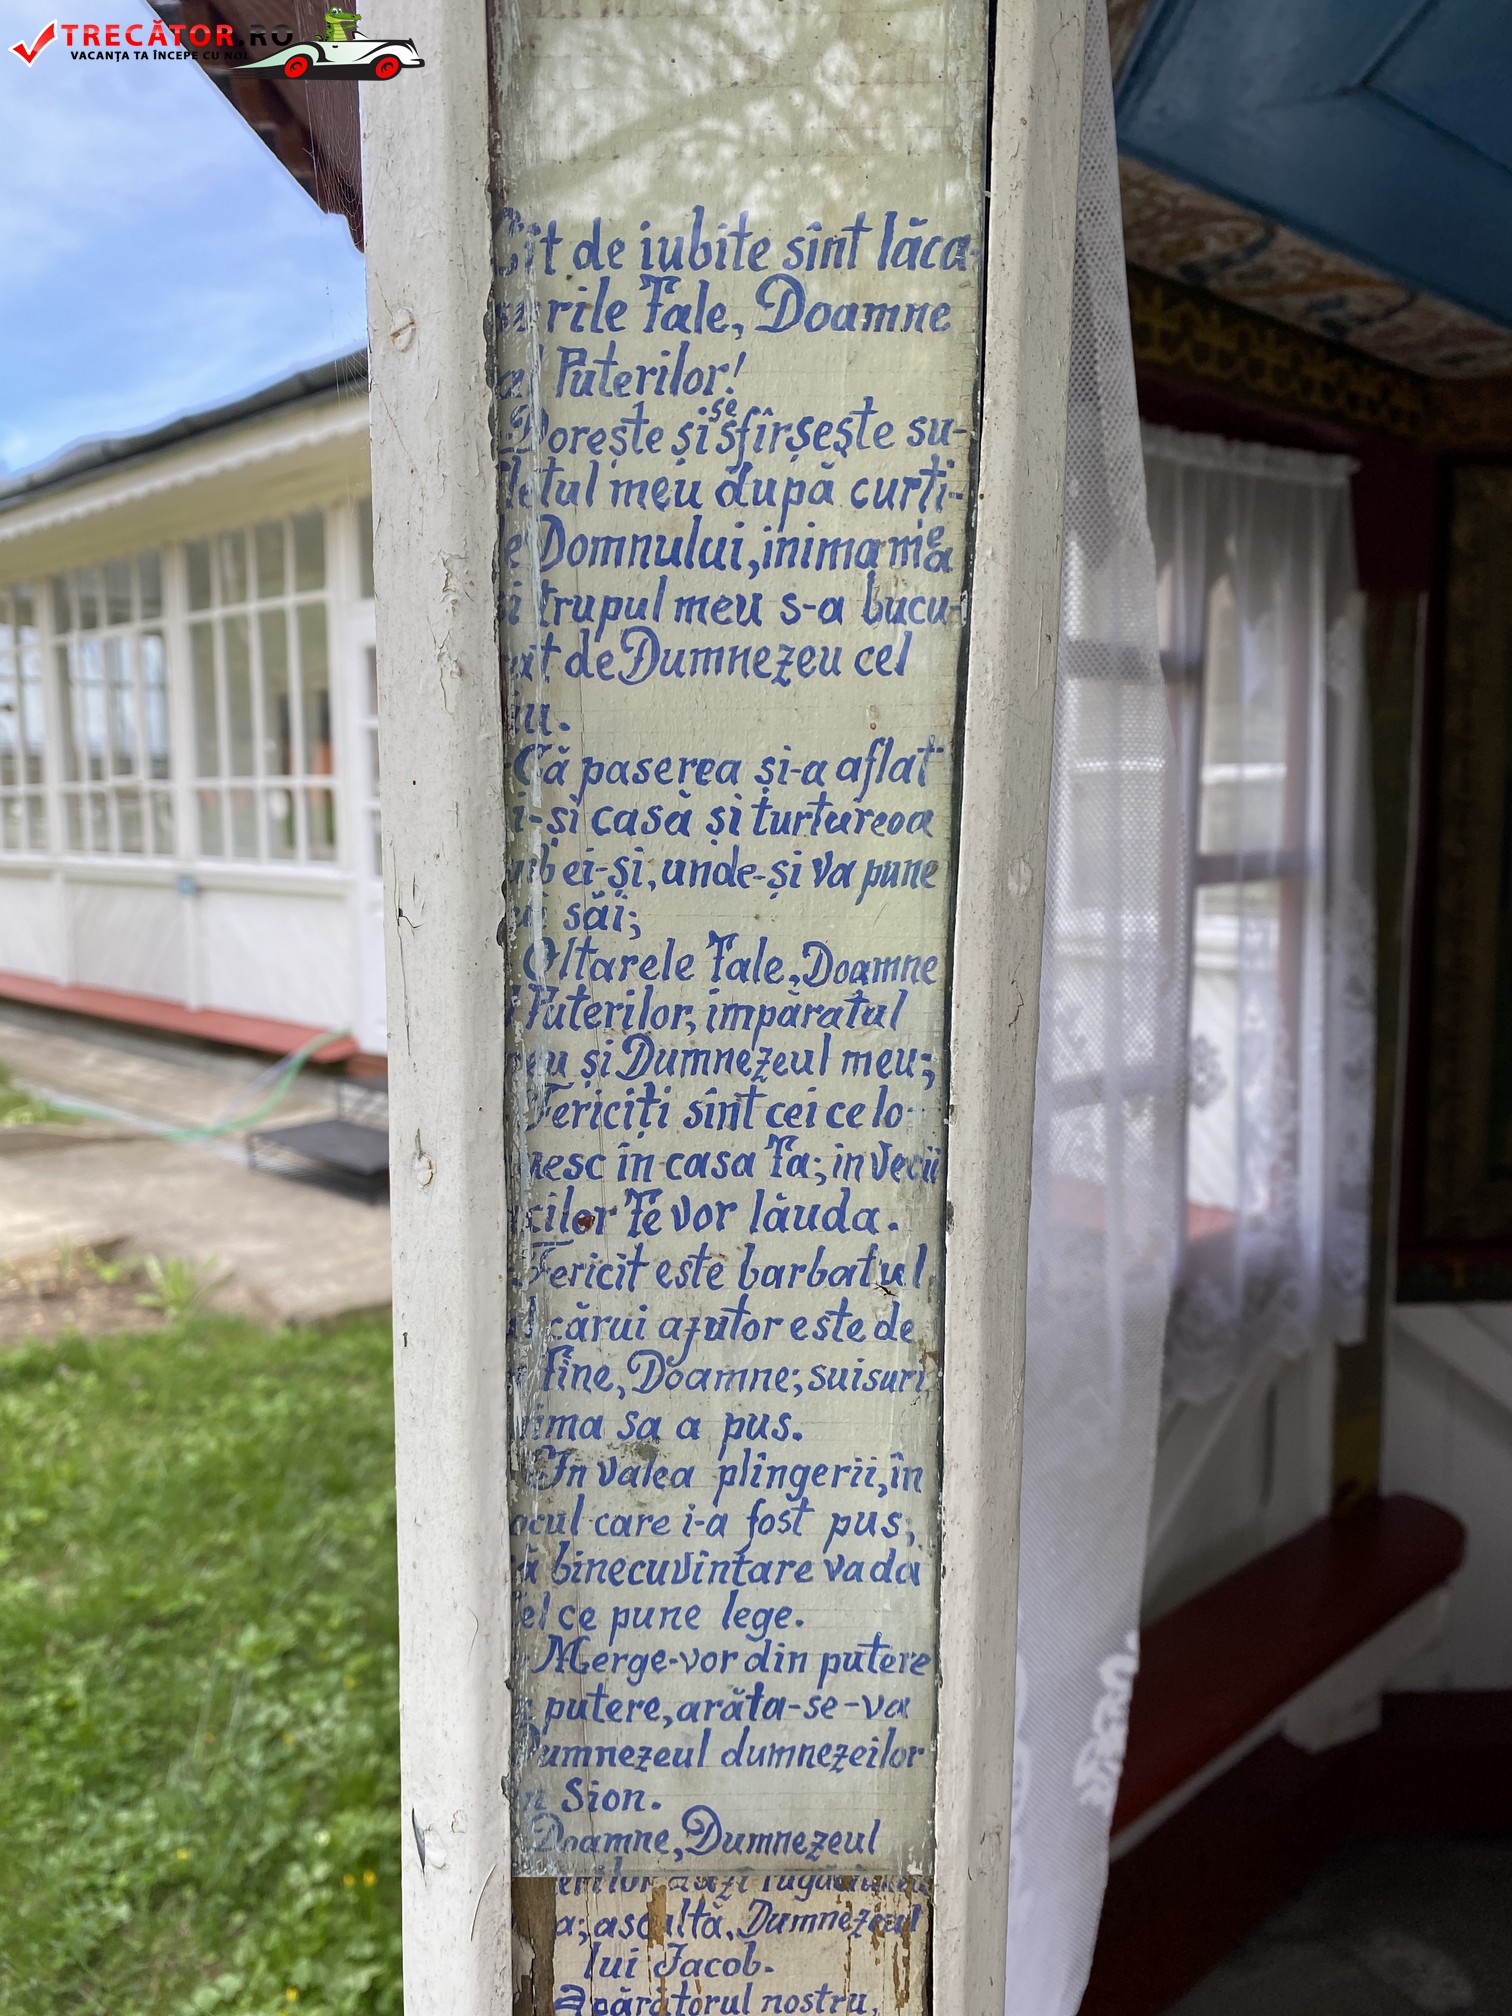 TRECĂTOR.RO
VACANȚA TA ÎNCEPE CU NOI
Cît de iubite sînt lăca-
șurile Tale, Doamne
al Puterilor!
Dorește și se sfîrșește su-
fletul meu după curți-
le Domnului, inima mea
și trupul meu s-a bucu-
rat de Dumnezeu cel
viu.
Că paserea și-a aflat
ei-și casă și turtureoa
cuib ei-și, unde-și va pune
puii săi;
Oltarele Tale, Doamne
al Puterilor, impăratul
meu și Dumnezeul meu;
Fericiți sînt cei ce lo-
cuesc în casa Ta; in vecii
vecilor Te vor lăuda.
Fericit este barbatul
al cărui ajutor este de
la Tine, Doamne; suisuri
inima sa a pus.
În valea plîngerii, în
locul care i-a fost pus;
că binecuvîntare va da
Cel ce pune lege.
Merge-vor din putere
în putere, arăta-se-va
Dumnezeul dumnezeilor
în Sion.
Doamne, Dumnezeul
erilor auzi rugăciunea
a; ascultă, Dumnezeul
lui Jacob.
Apărătorul nostru,